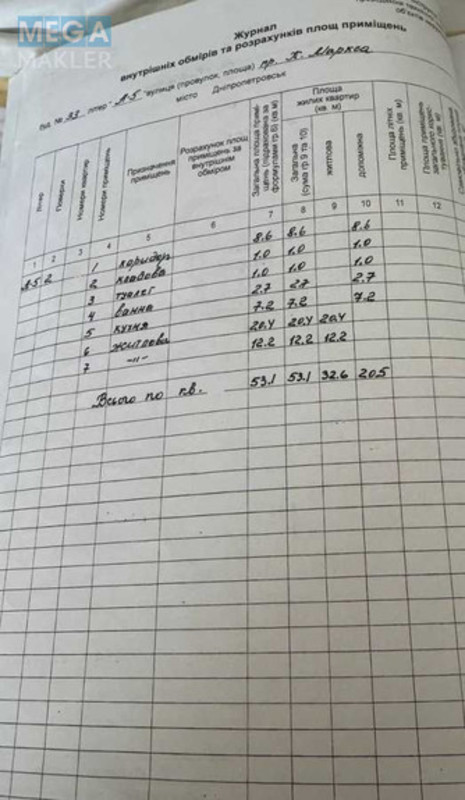 MEGA
MAKLER
Журнал
внутрішніх обмірів та розрахунків площ приміщень
буд. № 93 літер "А-5" вулиця (провулок, площа) пр. К. Маркса
місто Дніпропетровськ
Літер
Поверхи
Номери квартир
Номери приміщень
Призначення приміщень
Розрахунок площ приміщень за внутрішнім обміром
Загальна площа приміщень
формулами гр.6) (кв м)
Площа жилих квартир (кв. м)
Загальна (сума гр.9 та 10)
житлова
допоміжна
Площа літніх приміщень (кв. м)
Площа приміщень загального користування (кв. м)
1 2 3 4 5 6 7 8 9 10 11 12
А-5 2 1 коридор 8.6 8.6 8.6
2 кладова 1.0 1.0 1.0
3 туалет 1.0 1.0 1.0
4 ванна 2.7 2.7 2.7
5 кухня 7.2 7.2 7.2
6 житлова 20.4 20.4 20.4
7 -"- 12.2 12.2 12.2
Всього по кв. 53.1 53.1 32.6 20.5